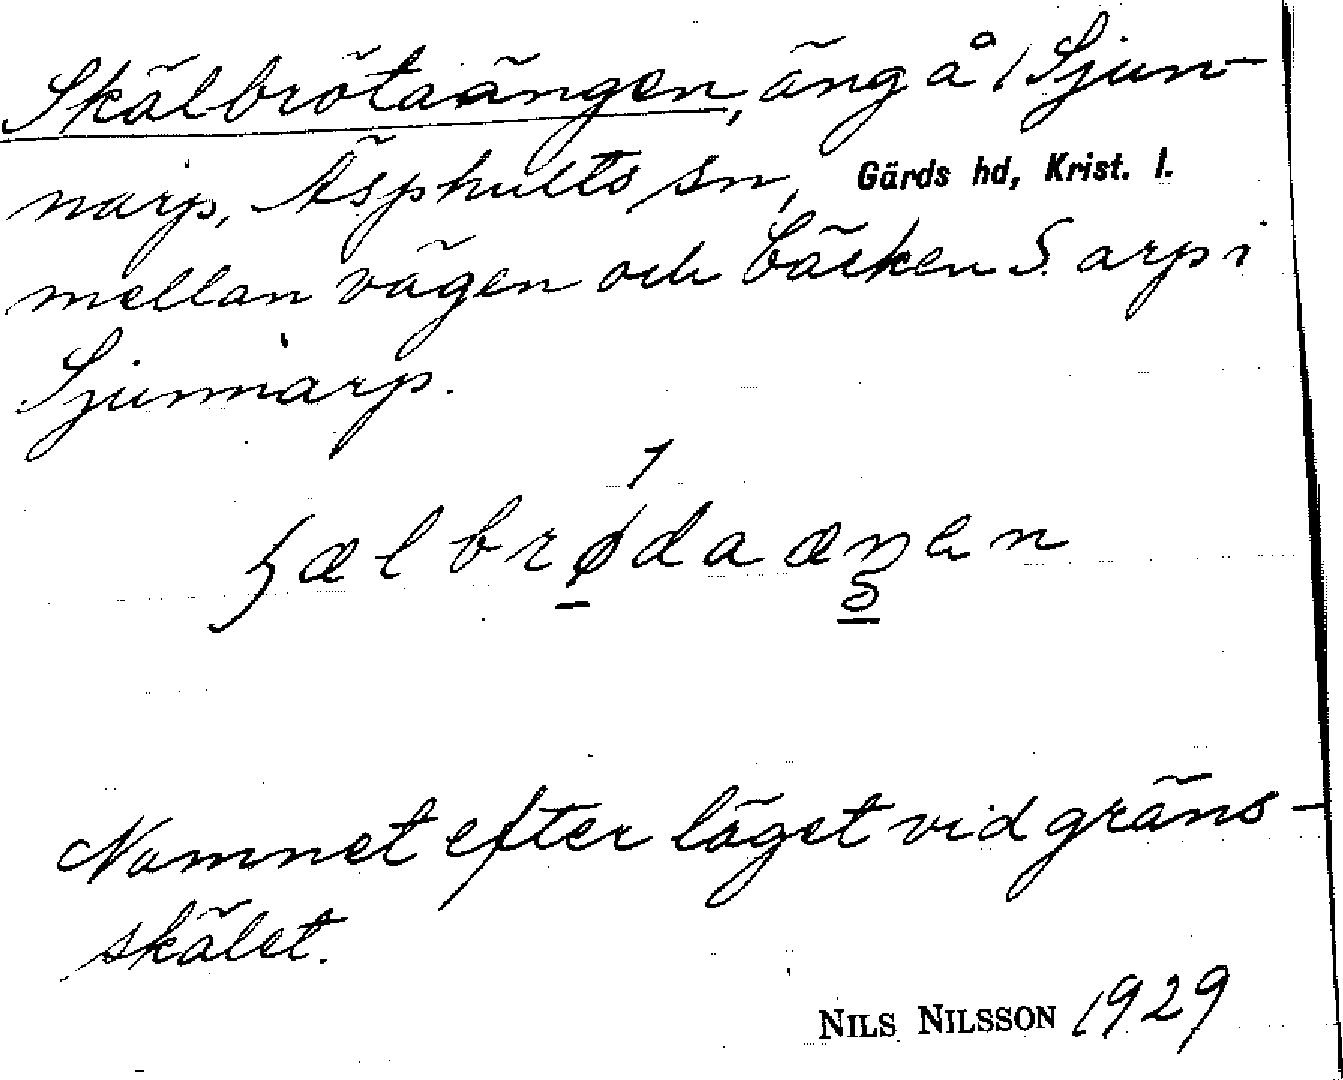 Skälbrötaängen, äng å 1 Sjun-
narp, Äsphults sn, Gärds hd, Krist. l.
mellan vägen och bäcken S. arp i
Sjunnarp.
ʃælbrødaæŋen
Namnet efter läget vid gräns-
skälet.
NILS NILSSON 1929